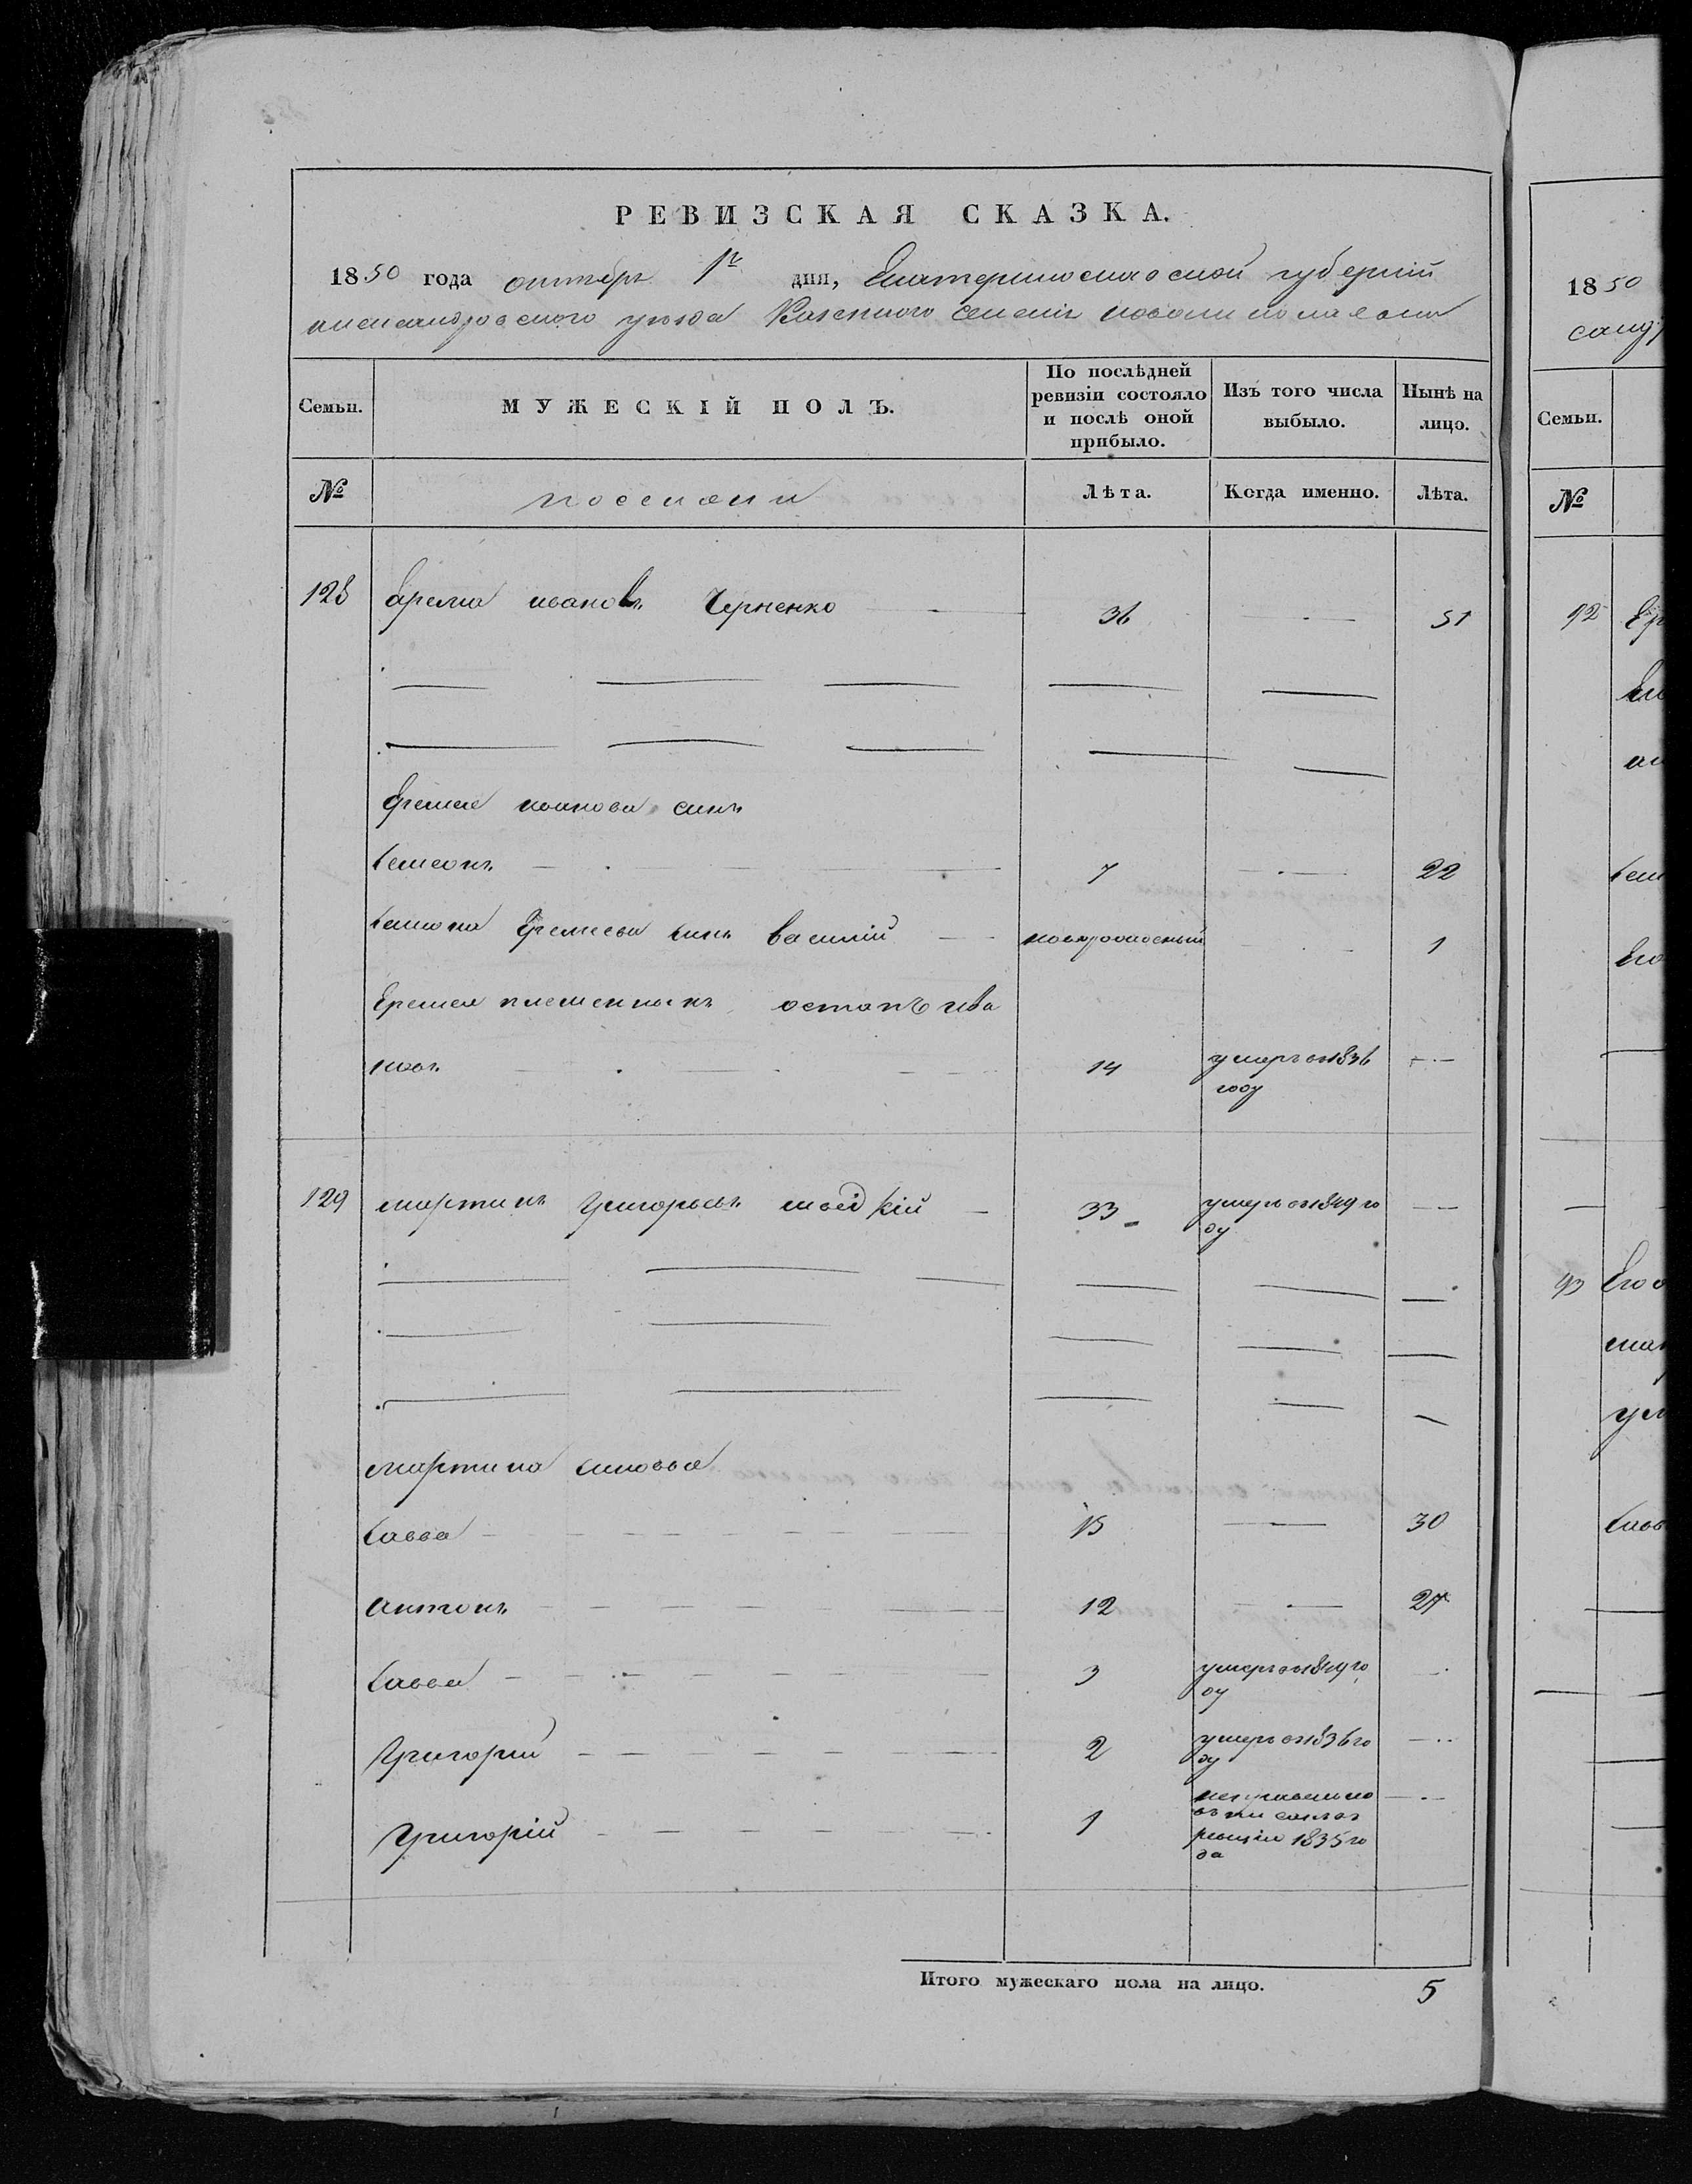 РЕВИЗСКАЯ СКАЗКА.
1850 года октябрь 1го дня, Екатеринославской губерніи
александровского уезда Казенного Селенія новониколаевки
Семьи. МУЖЕСКІЙ ПОЛЪ. По послѣдней ревизіи состояло и послѣ оной прибыло. Изъ того числа выбыло. Нынѣ на лицо.
№ поселяни Лѣта. Когда именно. Лѣта.
128 Ерема ивановъ Черненко 36 51
Еремея иванова синъ
Семеонъ 7 22
Семона Еремеева синъ василій новорожденый 1
Еремея племенникъ остапъ ива
новъ 14 умеръ въ 1836
году
129 мартинъ Григорьевъ 33 умеръ въ 1849 го
ду
мартина синовья
Савва 15 30
антонъ 12 27
Савва 3 умеръ въ 1849 го
ду
Григорий 2 умеръ въ 1836 го
ду
Григорій 1
ревизіи 1835 го
да
Итого мужескаго пола на лицо. 5
1850
санд
Семьи.
№
92
93